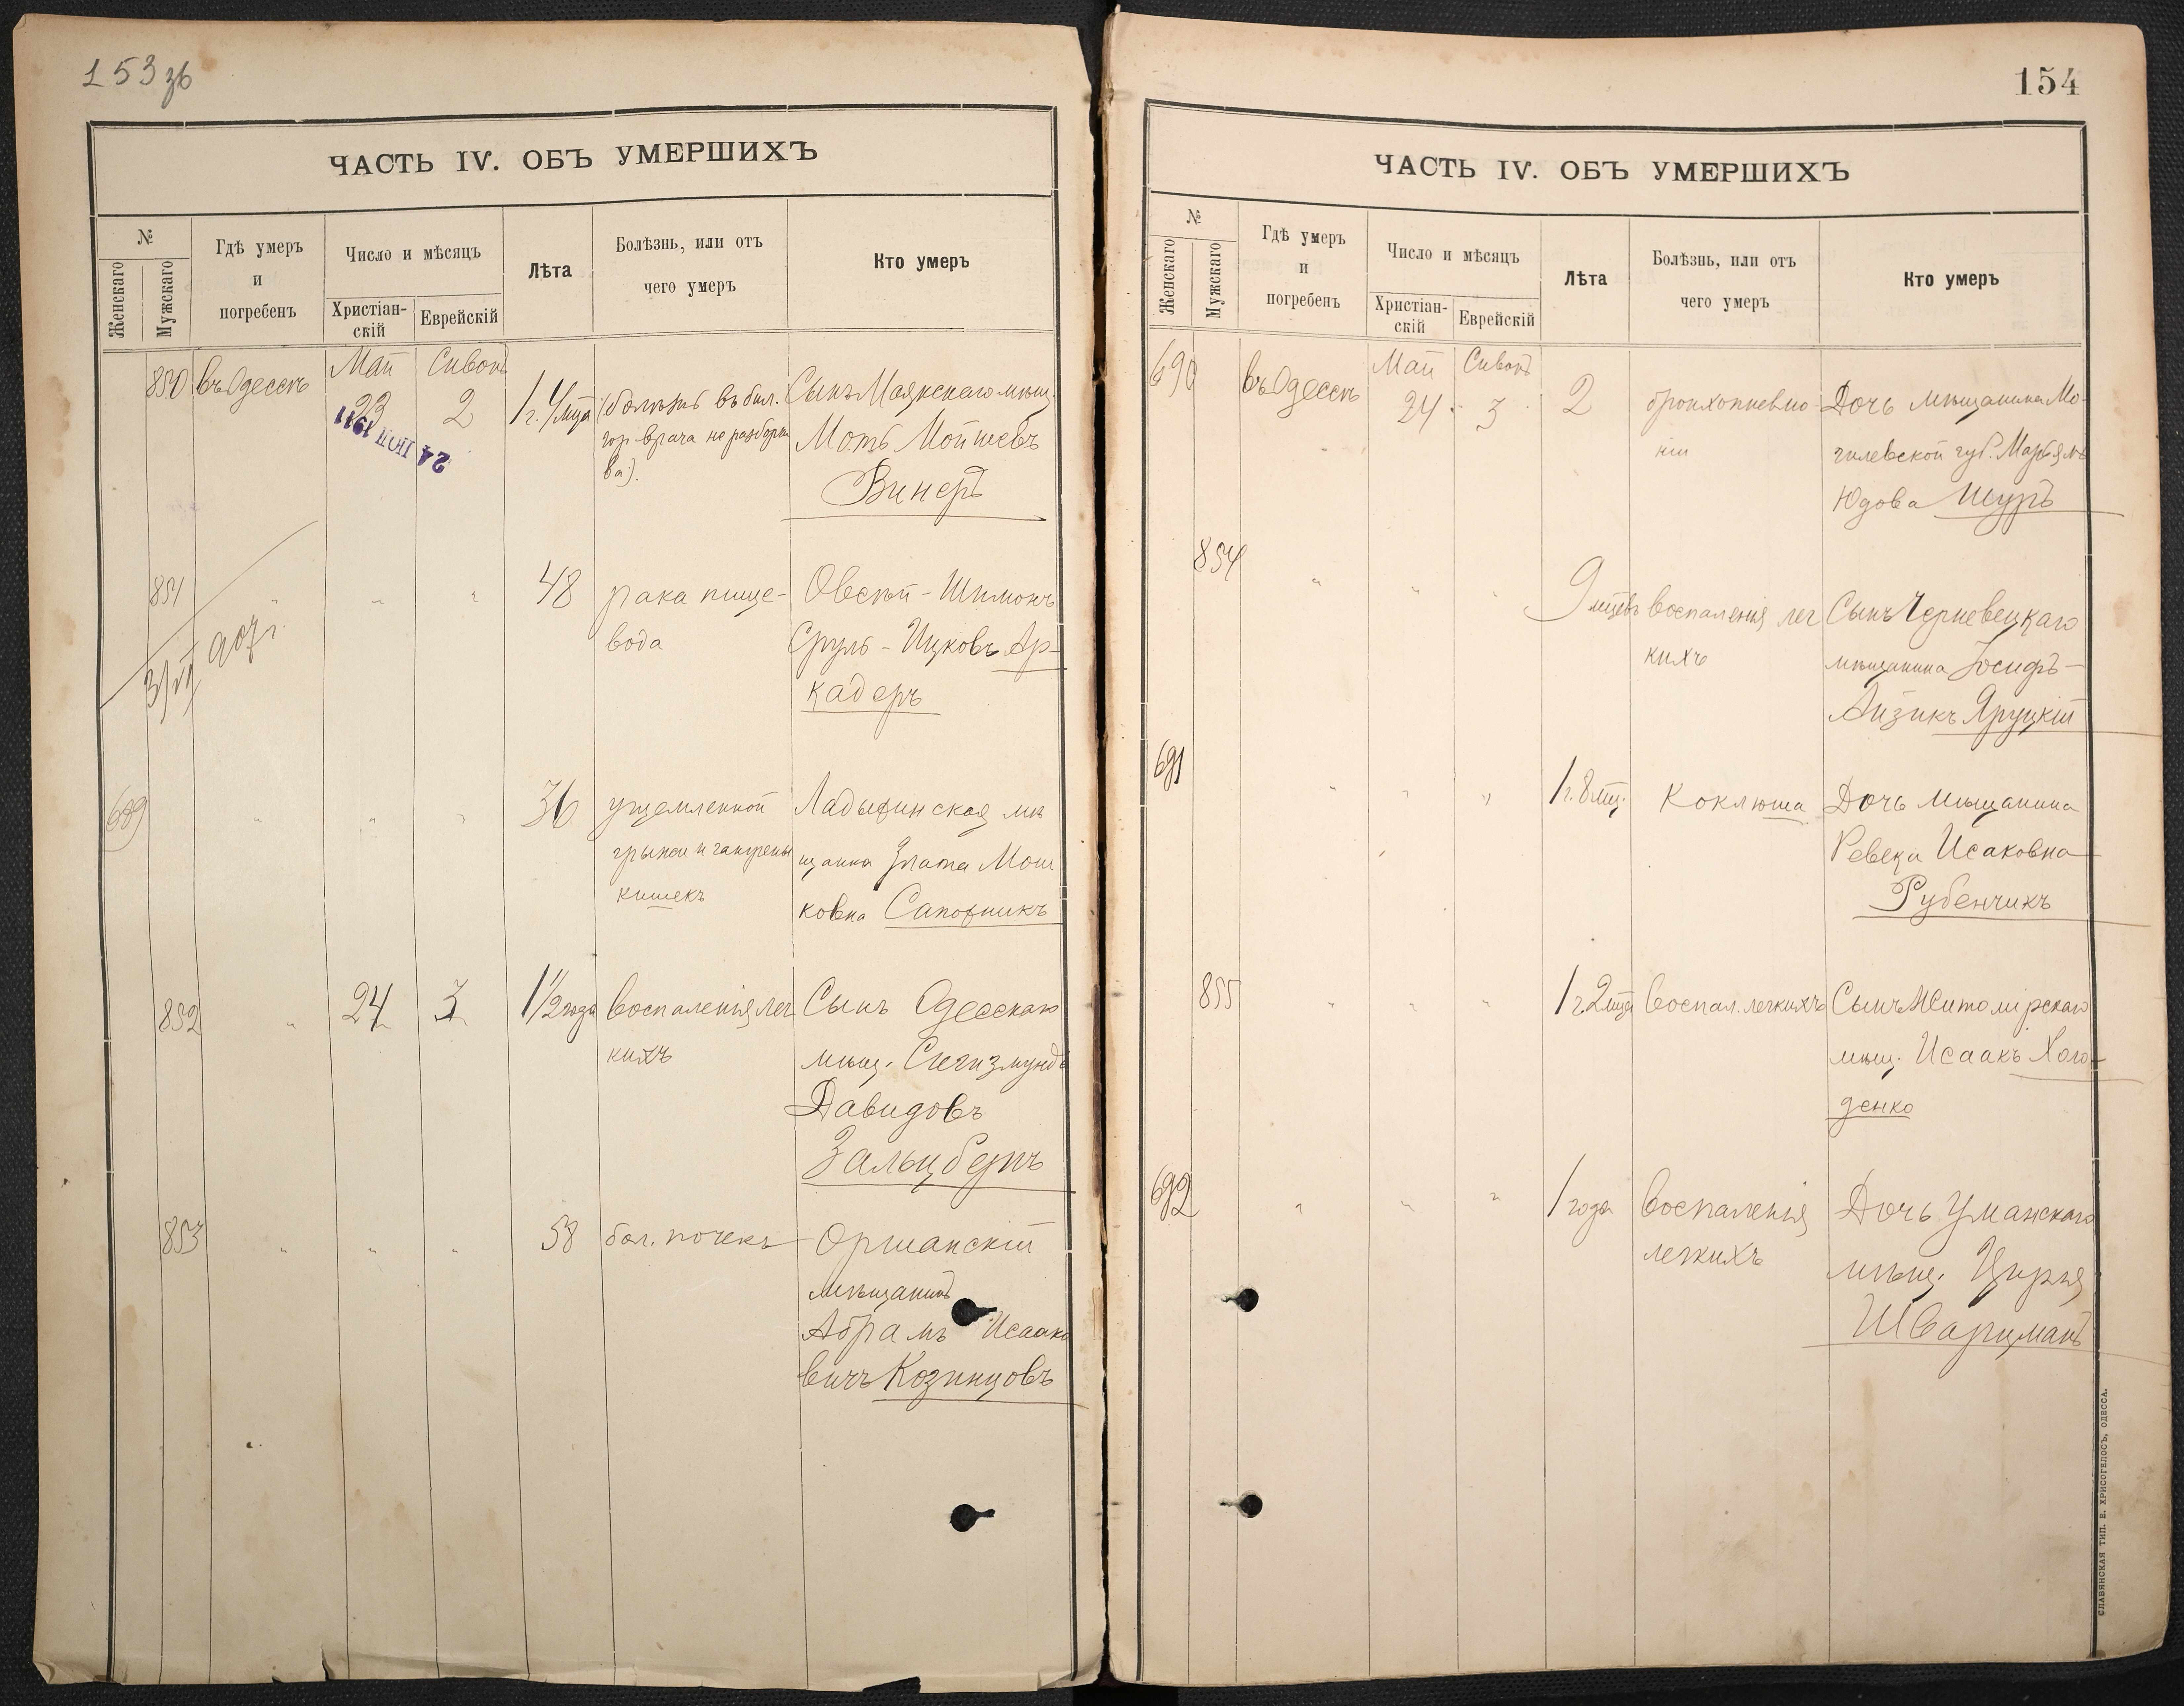 153 зв
ЧАСТЬ IV. ОБЪ УМЕРШИХЪ
№
Женскаго
Мужскаго
Гдѣ умеръ
и
погребенъ
Число и мѣсяцъ
Христіан-
скій
Еврейскій
Лѣта
Болѣзнь, или отъ
чего умеръ
Кто умеръ
850 въ Одессѣ
Май
23
Сивонъ
2
24 ІЮЛ 1911
1 г. 4 мца
(болѣзнь въ бил.
гор. врача не разборчи
ва).
Сынъ Маякскаго мѣщ.
Моть Мойшевъ
Винеръ
851 " " "
48
рака пище-
вода
Овсѣй-Шимонъ
Сруль-Ицковъ Ар-
кадеръ
907 г.
689 " " "
36
ущемленной
грыжи и гангрены
кишекъ
Ладыжинская мѣ
щанка Злата Мош
ковна Сапожникъ
852 "
24 3
1 1/2 года
воспаленія лег
кихъ
Сынъ Одесскаго
мѣщ. Сигизмундъ
Давидовъ
Зальцбергъ
853 " " "
58
бол. почекъ
Оршанскій
мѣщанинъ
Абрамъ Исаако
вичъ Козинцовъ
154
ЧАСТЬ IV. ОБЪ УМЕРШИХЪ
№
Женскаго
Мужскаго
Гдѣ умеръ
и
погребенъ
Число и мѣсяцъ
Христіан-
скій
Еврейскій
Лѣта
Болѣзнь, или отъ
чего умеръ
Кто умеръ
690 въ Одессѣ
Май
24
Сивонъ
3
2
бронхопневмо-
ніи
Дочь мѣщанина Мо-
гилевской губ. Марьямъ
Юдова Шуръ
854 " " "
9 мцевъ
воспаленія лег
кихъ
Сынъ Черневецкаго
мѣщанина Іосифъ-
Айзикъ Яруцкій
691 " " "
1 г. 8 мц.
Коклюша
Дочь мѣщанина
Ревека Исаковна
Рубенчикъ
855 " " "
1 г 2 мца
воспал. легкихъ
Сынъ Житомірскаго
мѣщ. Исаакъ Холо-
денко
692 " " "
1 года
воспаленія
легкихъ
Дочь Уманскаго
мѣщ. Цирля
Шварцманъ
СЛАВЯНСКАЯ ТИП. Е. ХРИСОГЕЛОСЪ, ОДЕССА.